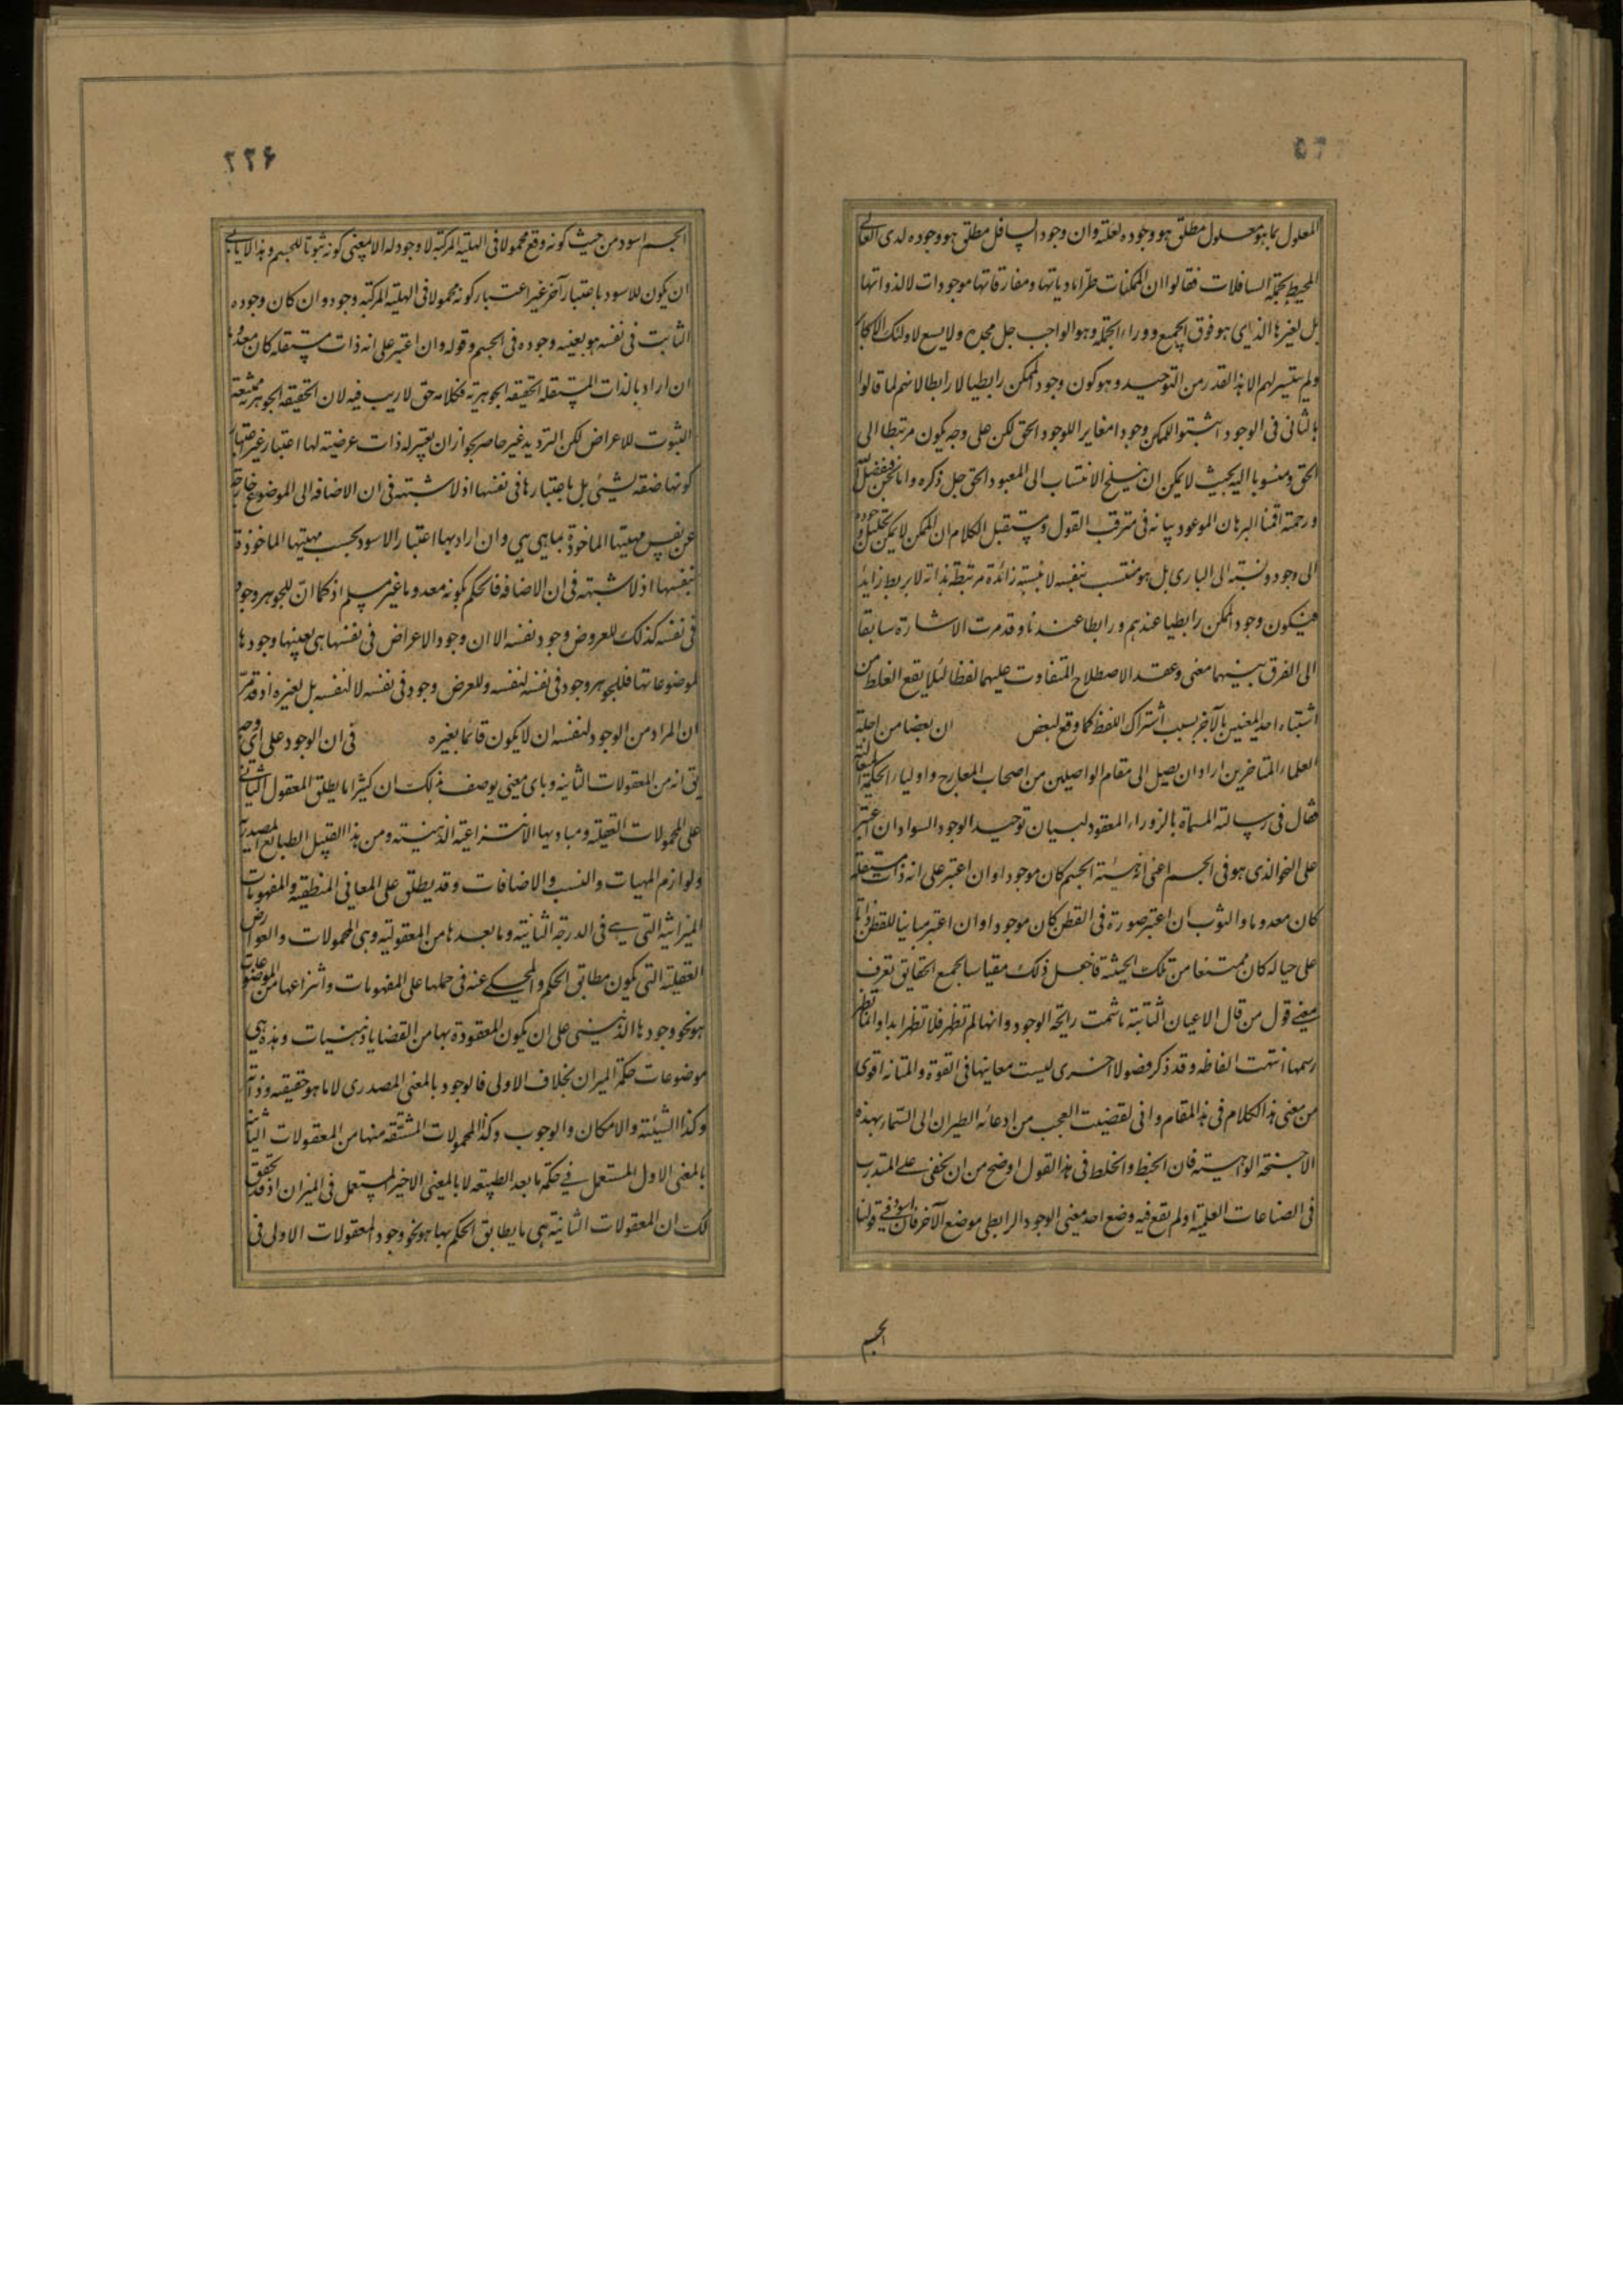 المعلول بما هو معلول مطلق هو وجوده لعلته وان وجود السافل مطلق هو وجوده لدى العالى
المحيط بجملة السافلات فقالوا ان الممكنات طرا مادياتها ومفارقاتها موجودات لا لذواتها
بل لغيرها الذى هو فوق الجميع ووراء الجملة وهو الواجب جل مجده ولا يسع لاولئك الاكابر
ولم يتيسر لهم الا هذا القدر من التوحيد وهو كون وجود الممكن رابطيا لا رابطا لانهم لما قالوا
بالثانى فى الوجود اثبتوا للممكن وجودا مغايرا للوجود الحق لكن على وجه يكون مرتبطا الى
الحق ومنسوبا اليه بحيث لا يمكن ان ينسلخ الانتساب الى المعبود الحق جل ذكره واما نحن فبفضل الله
ورحمته اقمنا البرهان الموعود بيانه فى مترقب القول ومستقبل الكلام ان الممكن لا يمكن تحليل وجوده
الى وجود ونسبة الى البارى بل هو منتسب بنفسه لا بنسبة زائدة مرتبطة بذاته لا بربط زايد
فيكون وجود الممكن رابطيا عندهم ورابطا عندنا وقد مرت الاشارة سابقا
الى الفرق بينهما معنى وعقد الاصطلاح المتفاوت عليهما لفظا لئلا يقع الغلط من
اشتباه احد المعنيين بالآخر بسبب اشتراك اللفظ كما وقع لبعض ان بعضا من اجلة
العلماء المتاخرين اراد ان يصل الى مقام الواصلين من اصحاب المعارج واولياء الحكمة المتعالية
فقال فى رسالته المسماة بالزوراء المعقود لبيان توحيد الوجود السواد ان اعتبر
على النحو الذى هو فى الجسم اعنى انه هيئة الجسم كان موجودا وان اعتبر على انه ذات مستقلة
كان معدوما والثوب ان اعتبر صورة فى القطن كان موجودا وان اعتبر مباينا للقطن ذاتا
على حياله كان ممتنعا من تلك الحيثية فاجعل ذلك مقياسا لجميع الحقايق تعرف
معنى قول من قال الاعيان الثابتة ما شمت رايحة الوجود وانها لم تظهر فلا تظهر ابدا وانما تظهر
رسمها انتهت الفاظه وقد ذكر فضولا اخرى ليست معانيها فى القوة والمتانة اقوى
من معنى هذا الكلام فى هذا المقام وانى لقضيت العجب من ادعائه الطيران الى السماء بهذه
الاجنحة الواهية فان الخبط والخلط فى هذا القول اوضح من ان يخفى على المتدرب
فى الصناعات العلمية او لم يقع فيه وضع احد معنى الوجود الرابطى موضع الآخر فان اسود فى قولنا
الجسم
٢٢۶
الجسم اسود من حيث كونه وقع محمولا فى الهلية المركبة لا وجود له الا بمعنى كونه ثبوتا للجسم وهذا لا يابى
ان يكون للاسود باعتبار آخر غير اعتبار كونه محمولا فى الهلية المركبة وجود وان كان وجوده
الثابت فى نفسه هو بعينه وجوده فى الجسم وقوله وان اعتبر على انه ذات مستقله كان معدوما
ان اراد بالذات المستقله الحقيقه الجوهرية فكلامه حق لا ريب فيه لان الحقيقه الجوهرية ممتنعة
الثبوت للاعراض لكن الترديد غير حاصر لجواز ان يعتبر له ذات عرضية لها اعتبار غير اعتبار
كونها صفة لشيئى بل باعتبارها فى نفسها اذ لا شبهة فى ان الاضافه الى الموضوع خارجة
عن نفس مهيتها الماخوذة بما هى هى وان اراد بها اعتبار الاسود بحسب مهيتها الماخوذة
بنفسها اذ لا شبهة فى ان الاضافة فالحكم بكونه معدوما غير مسلم اذ كما ان للجوهر وجودا
فى نفسه كذلك للعروض وجود نفسه الا ان وجود الاعراض فى نفسها هى بعينها وجودها
لموضوعاتها فللجوهر وجود فى نفسه لنفسه وللعرض وجود فى نفسه لا لنفسه بل لغيره اذ قد مر
ان المراد من الوجود لنفسه ان لا يكون قائما بغيره فى ان الوجود على اى وجه
يق انه من المعقولات الثانيه وباى معنى يوصف بذلك ان كثيرا ما يطلق المعقول الثانى
على المحمولات العقلية ومباديها الانتزاعية الذهنية ومن هذا القبيل الطبايع المصدرية
ولوازم المهيات والنسب والاضافات وقد يطلق على المعانى المنطقية والمفهومات
الميزانية التى هى فى الدرجة الثانية وما بعدها من المعقولية وهى المحمولات والعوارض
العقلية التى يكون مطابق الحكم والمحكى عنه فى حملها على المفهومات وانتزاعها من الموضوعات
هو نحو وجودها الذهنى على ان يكون المعقودة بها من القضايا ذهنيات وهذه هى
موضوعات حكمة الميزان بخلاف الاولى فالوجود بالمعنى المصدرى لا ما هو حقيقه وذاته
وكذا الشيئية والامكان والوجوب وكذا المحمولات المشتقه منها من المعقولات الثانية
بالمعنى الاول المستعمل فى حكمة ما بعد الطبيعه لا بالمعنى الاخير المستعمل فى الميزان اذ قد تحقق
لك ان المعقولات الثانية هى ما يطابق الحكم بها هو نحو وجود المعقولات الاولى فى